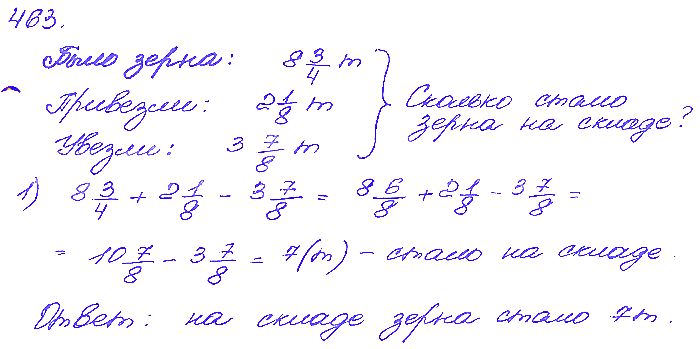 463.
Было зерна: 8 3/4 т
Привезли: 2 1/8 т
Увезли: 3 7/8 т
Сколько стало
зерна на складе?
1) 8 3/4 + 2 1/8 - 3 7/8 = 8 6/8 + 2 1/8 - 3 7/8 =
= 10 7/8 - 3 7/8 = 7 (т) - стало на складе.
Ответ: на складе зерна стало 7т.